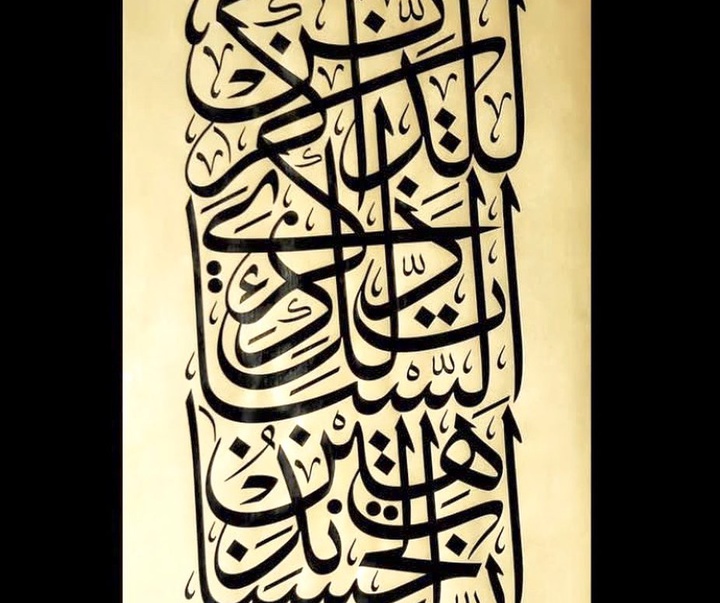 إن الحسنات يذهبن
السيئات ذلك ذكرى
للذاكرين